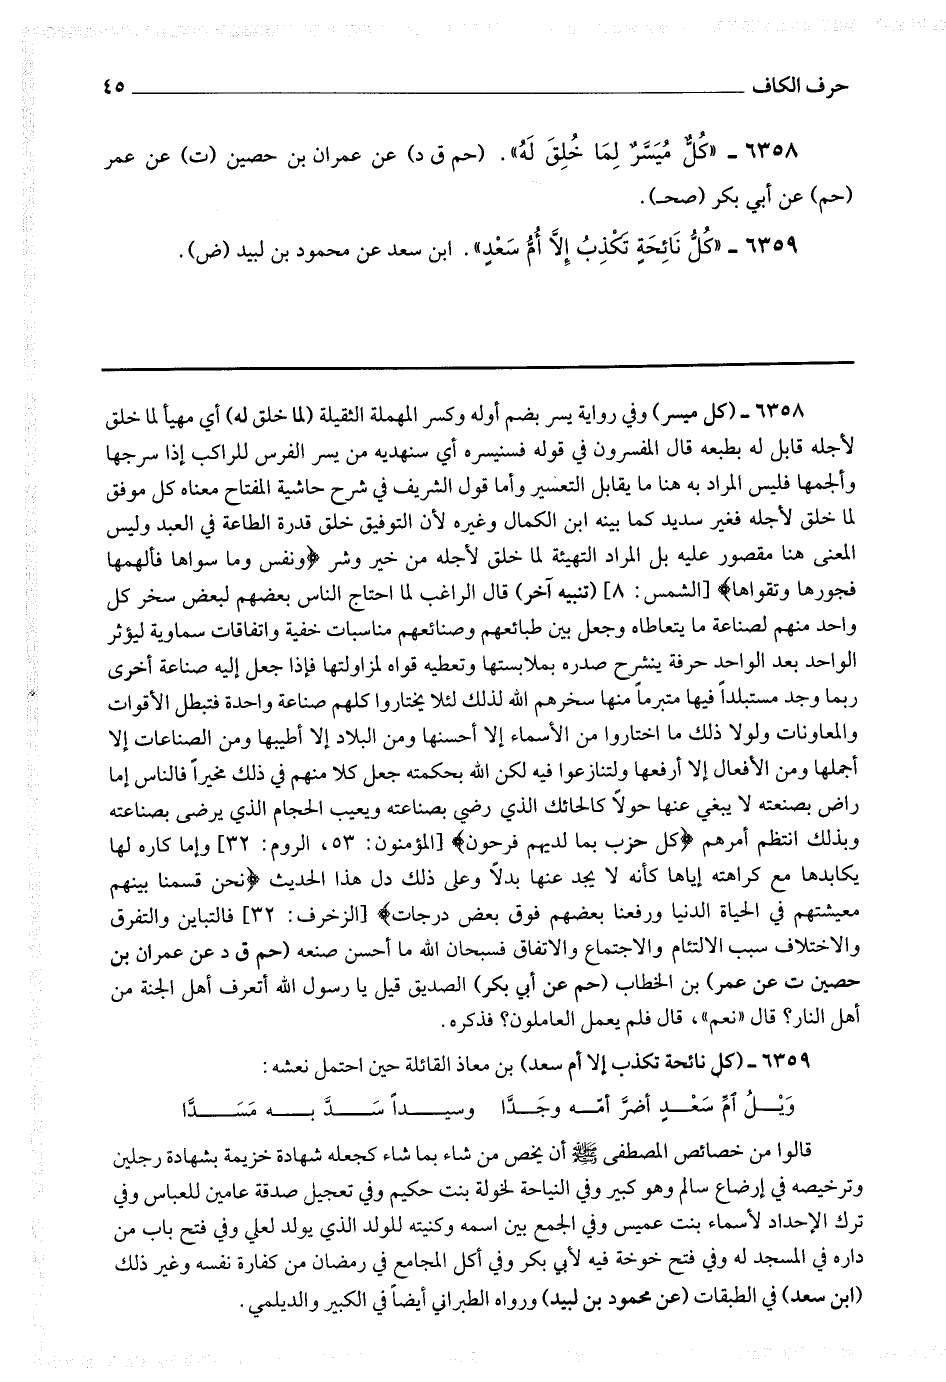 حرف الكاف ٤٥
٦٣٥٨ ـ «كُلٌّ مُيَسَّرٌ لِمَا خُلِقَ لَهُ». (حم ق د) عن عمران بن حصين (ت) عن عمر
(حم) عن أبي بكر (صحـ).
٦٣٥٩ ـ «كُلُّ نَائِحَةٍ تَكْذِبُ إِلاَّ أُمُّ سَعْدٍ». ابن سعد عن محمود بن لبيد (ض).
٦٣٥٨ ـ (كل ميسر) وفي رواية يسر بضم أوله وكسر المهملة الثقيلة (لما خلق له) أي مهيأ لما خلق
لأجله قابل له بطبعه قال المفسرون في قوله فسنيسره أي سنهديه من يسر الفرس للراكب إذا سرجها
وألجمها فليس المراد به هنا ما يقابل التعسير وأما قول الشريف في شرح حاشية المفتاح معناه كل موفق
لما خلق لأجله فغير سديد كما بينه ابن الكمال وغيره لأن التوفيق خلق قدرة الطاعة في العبد وليس
المعنى هنا مقصور عليه بل المراد التهيئة لما خلق لأجله من خير وشر ﴿ونفس وما سواها فألهمها
فجورها وتقواها﴾ [الشمس: ٨] (تنبيه آخر) قال الراغب لما احتاج الناس بعضهم لبعض سخر كل
واحد منهم لصناعة ما يتعاطاه وجعل بين طبائعهم وصنائعهم مناسبات خفية واتفاقات سماوية ليؤثر
الواحد بعد الواحد حرفة ينشرح صدره بملابستها وتعطيه قواه لمزاولتها فإذا جعل إليه صناعة أخرى
ربما وجد مستبلداً فيها متبرماً منها سخرهم الله لذلك لئلا يختاروا كلهم صناعة واحدة فتبطل الأقوات
والمعاونات ولولا ذلك ما اختاروا من الأسماء إلا أحسنها ومن البلاد إلا أطيبها ومن الصناعات إلا
أجملها ومن الأفعال إلا أرفعها ولتنازعوا فيه لكن الله بحكمته جعل كلا منهم في ذلك مخيراً فالناس إما
راض بصنعته لا يبغي عنها حولاً كالحائك الذي رضي بصناعته ويعيب الحجام الذي يرضى بصناعته
وبذلك انتظم أمرهم ﴿كل حزب بما لديهم فرحون﴾ [المؤمنون: ٥٣، الروم: ٣٢] وإما كاره لها
يكابدها مع كراهته إياها كأنه لا يجد عنها بدلاً وعلى ذلك دل هذا الحديث ﴿نحن قسمنا بينهم
معيشتهم في الحياة الدنيا ورفعنا بعضهم فوق بعض درجات﴾ [الزخرف: ٣٢] فالتباين والتفرق
والاختلاف سبب الالتئام والاجتماع والاتفاق فسبحان الله ما أحسن صنعه (حم ق د عن عمران بن
حصين ت عن عمر) بن الخطاب (حم عن أبي بكر) الصديق قيل يا رسول الله أتعرف أهل الجنة من
أهل النار؟ قال «نعم»، قال فلم يعمل العاملون؟ فذكره.
٦٣٥٩ ـ (كل نائحة تكذب إلا أم سعد) بن معاذ القائلة حين احتمل نعشه:
وَيْـلُ آمِّ سَعْـدٍ أضرَّ أمّـه وجَـدَّا وسيـداً سَـدَّ بـه مَسَـدَّا
قالوا من خصائص المصطفى ﷺ أن يخص من شاء بما شاء كجعله شهادة خزيمة بشهادة رجلين
وترخيصه في إرضاع سالم وهو كبير وفي النياحة لخولة بنت حكيم وفي تعجيل صدقة عامين للعباس وفي
ترك الإحداد لأسماء بنت عميس وفي الجمع بين اسمه وكنيته للولد الذي يولد لعلي وفي فتح باب من
داره في المسجد له وفي فتح خوخة فيه لأبي بكر وفي أكل المجامع في رمضان من كفارة نفسه وغير ذلك
(ابن سعد) في الطبقات (عن محمود بن لبيد) ورواه الطبراني أيضاً في الكبير والديلمي.